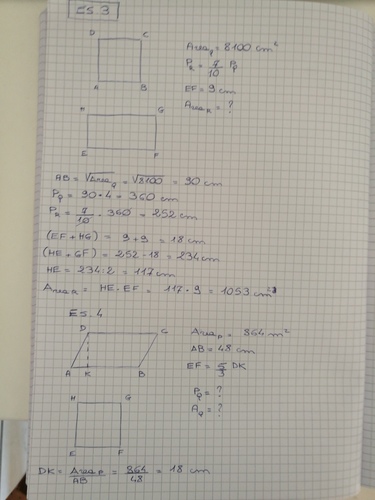 ES. 3
D C
A B
Area_q = 8100 cm²
P_R = 7/10 P_q
EF = 9 cm
Area_R = ?
H G
E F
AB = √Area_q = √8100 = 90 cm
P_q = 90 • 4 = 360 cm
P_R = 7/10 • 360 = 252 cm
(EF + HG) = 9 + 9 = 18 cm
(HE + GF) = 252 - 18 = 234 cm
HE = 234 : 2 = 117 cm
Area_R = HE • EF = 117 • 9 = 1053 cm²
ES. 4
D C
A K B
Area_P = 864 m²
AB = 48 cm
EF = 5/3 DK
P_q = ?
A_q = ?
H G
E F
DK = Area_P/AB = 864/48 = 18 cm